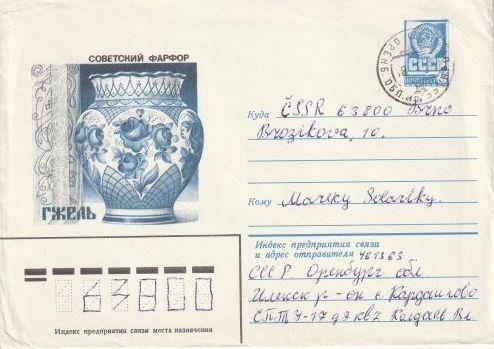 СОВЕТСКИЙ ФАРФОР
ГЖЕЛЬ
СССР
Куда ČSSR 63800 Brno
Brozíkova, 10.
Кому Mareky Solaříky.
Индекс предприятия связи
и адрес отправителя 461363
СССР Оренбург обл
Илекск р-он с Кардаилово
СПТУ-17 д9 кв2 Колдаев Вл
63800
Индекс предприятия связи места назначения